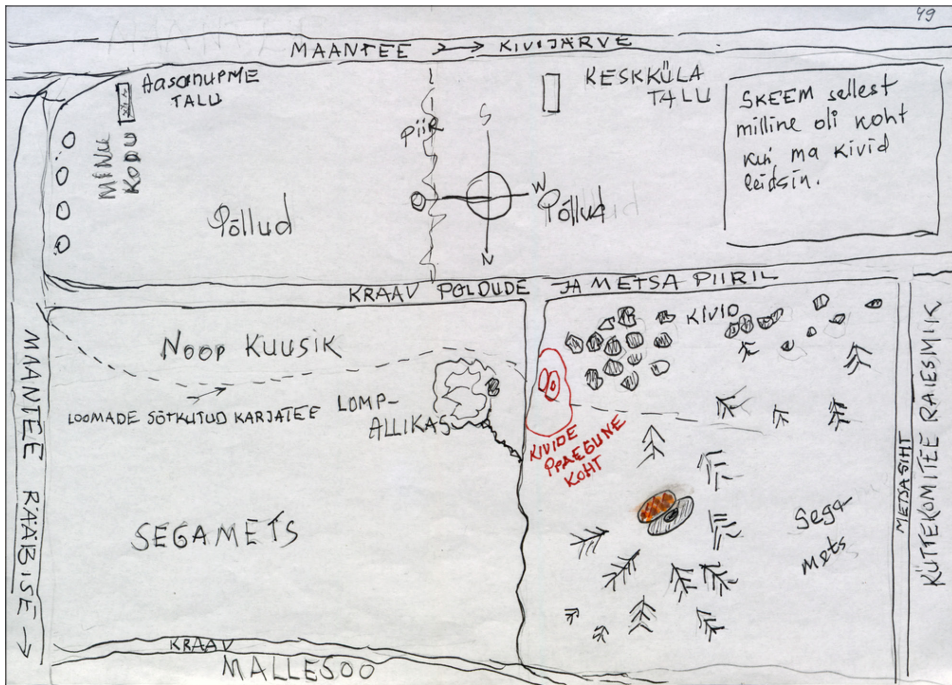 49
MAANTEE → KIVIJÄRVE
TALU
MINU
KODU
piir
S
W
N
KESKKÜLA
TALU
SKEEM sellest
milline oli koht
kui ma kivid
leidsin.
Põllud
Põllud
KRAAV POLDUDE JA METSA PIIRIL
MAANTEE KAABISE →
NOOR KUUSIK
LOOMADE SÕTKUTUD KARJATEE
LOMP-
ALLIKAS
KIVID
KIVIDE
PRAEGUNE
KOHT
SEGAMETS
Sega
mets
METSASIHT
KÜTTEKOMITEE RAIESMIK
KRAAV
MALLESOO